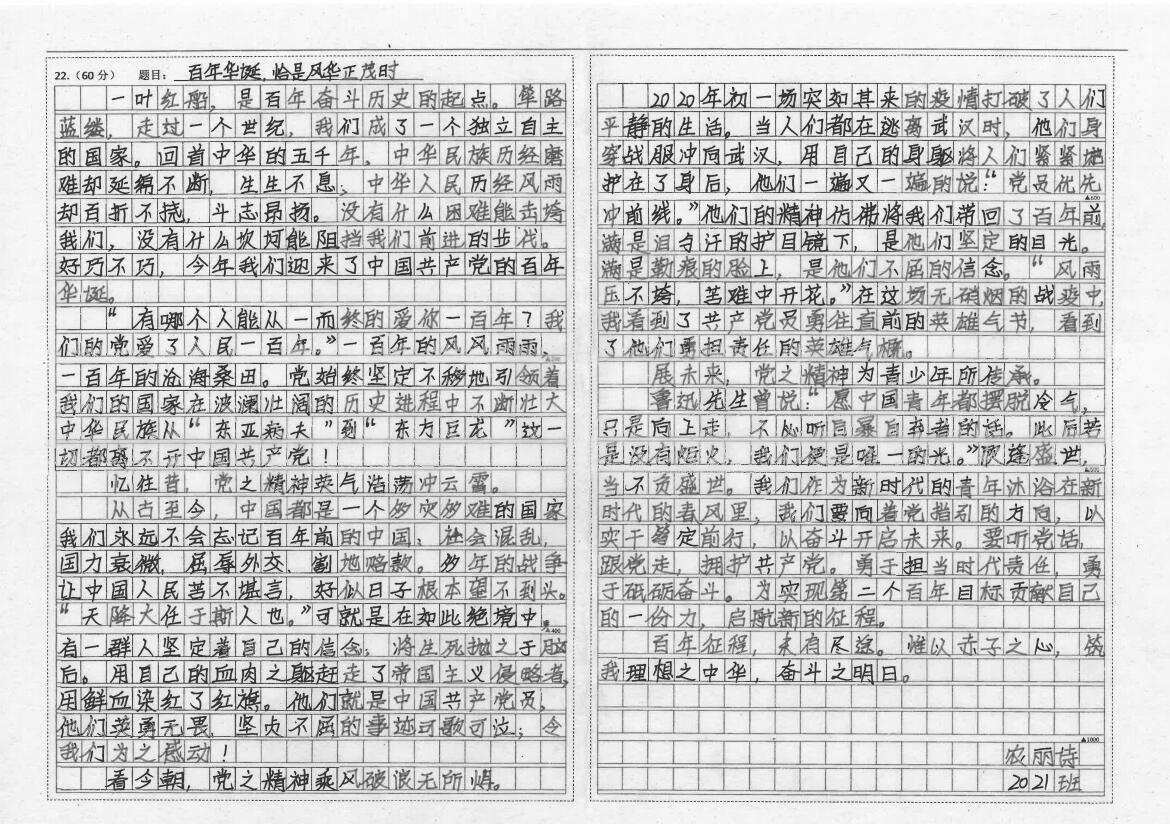 22.（60分） 题目： 百年华诞，恰是风华正茂时
一叶红船，是百年奋斗历史的起点。筚路
蓝缕，走过一个世纪，我们成了一个独立自主
的国家。回首中华的五千年，中华民族历经磨
难却延绵不断，生生不息；中华人民历经风雨
却百折不挠，斗志昂扬。没有什么困难能击垮
我们，没有什么坎坷能阻挡我们前进的步伐。
好巧不巧，今年我们迎来了中国共产党的百年
华诞。
“有哪个人能从一而终的爱你一百年？我
们的党爱了人民一百年。”一百年的风风雨雨，
▲200
一百年的沧海桑田。党始终坚定不移地引领着
我们的国家在波澜壮阔的历史进程中不断壮大
中华民族从“东亚病夫”到“东方巨龙”这一
切都离不开中国共产党！
忆往昔，党之精神英气浩荡冲云霄。
从古至今，中国都是一个多灾多难的国家
我们永远不会忘记百年前的中国、社会混乱，
国力衰微，屈辱外交、割地赔款。多年的战争
让中国人民苦不堪言，好似日子根本望不到头。
“天降大任于斯人也。”可就是在如此绝境中，
▲400
有一群人坚定着自己的信念；将生死抛之于脑
后。用自己的血肉之躯赶走了帝国主义侵略者，
用鲜血染红了红旗。他们就是中国共产党员，
他们英勇无畏、坚贞不屈的事迹可歌可泣；令
我们为之感动！
看今朝，党之精神乘风破浪无所惧。
2020年初一场突如其来的疫情打破了人们
平静的生活。当人们都在逃离武汉时，他们身
穿战服冲向武汉，用自己的身躯将人们紧紧地
护在了身后，他们一遍又一遍的说：“党员优先
▲600
冲前线。”他们的精神仿佛将我们带回了百年前，
满是泪与汗的护目镜下，是他们坚定的目光。
满是勒痕的脸上，是他们不屈的信念。“风雨
压不垮，苦难中开花。”在这场无硝烟的战疫中，
我看到了共产党员勇往直前的英雄气节，看到
了他们勇担责任的英雄气概。
展未来，党之精神为青少年所传承。
鲁迅先生曾说：“愿中国青年都摆脱冷气，
只是向上走，不必听自暴自弃者的话。此后若
是没有炬火，我们便是唯一的光。”欣逢盛世，
▲800
当不负盛世。我们作为新时代的青年沐浴在新
时代的春风里，我们要向着党指引的方向，以
实干笃定前行，以奋斗开启未来。要听党话，
跟党走，拥护共产党。勇于担当时代责任，勇
于砥砺奋斗。为实现第二个百年目标贡献自己
的一份力，启航新的征程。
百年征程，未有尽途。惟以赤子之心，筑
我理想之中华，奋斗之明日。
▲1000
农丽诗
2021班